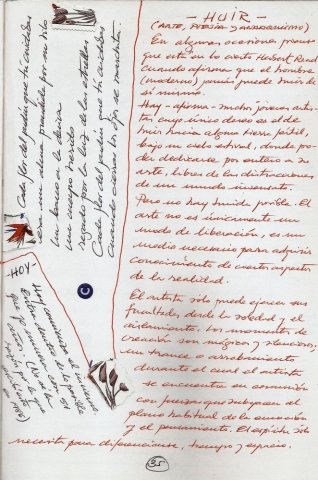 - HUIR -
(ARTE, POESÍA Y ANARQUISMO)
En algunas ocasiones pienso
que está en lo cierto Herbert Read
cuando afirma que el hombre
(moderno) jamás puede huir de
sí mismo.
Hay - afirma - muchos jóvenes artis-
tas cuyo único deseo es el de
huir hacia alguna tierra fértil,
bajo un cielo estival, donde po-
der dedicarse por entero a su
arte, libres de las distracciones
de un mundo insensato.
Pero no hay huida posible. El
arte no es únicamente un
modo de liberación, es un
medio necesario para adquirir
conocimiento de ciertos aspectos
de la realidad.
El artista sólo puede ejercer sus
facultades, desde la soledad y el
aislamiento. Los momentos de
creación son mágicos y silenciosos,
un trance o arrobamiento
durante el cual el artista
se encuentra en comunión
con fuerzas que subyacen al
plano habitual de la emoción
y el pensamiento. El espíritu sólo
necesita para diferenciarse, tiempo y espacio.
Cada flor del jardín que tú cuidabas
era un sueño prendido por un hilo
un barco a la deriva
un cuerpo
regado por la luz de las estrellas
Cada flor del jardín que tú cuidabas
cuando cierras los ojos se marchita.
- HOY -
Hoy comienza el universo
35